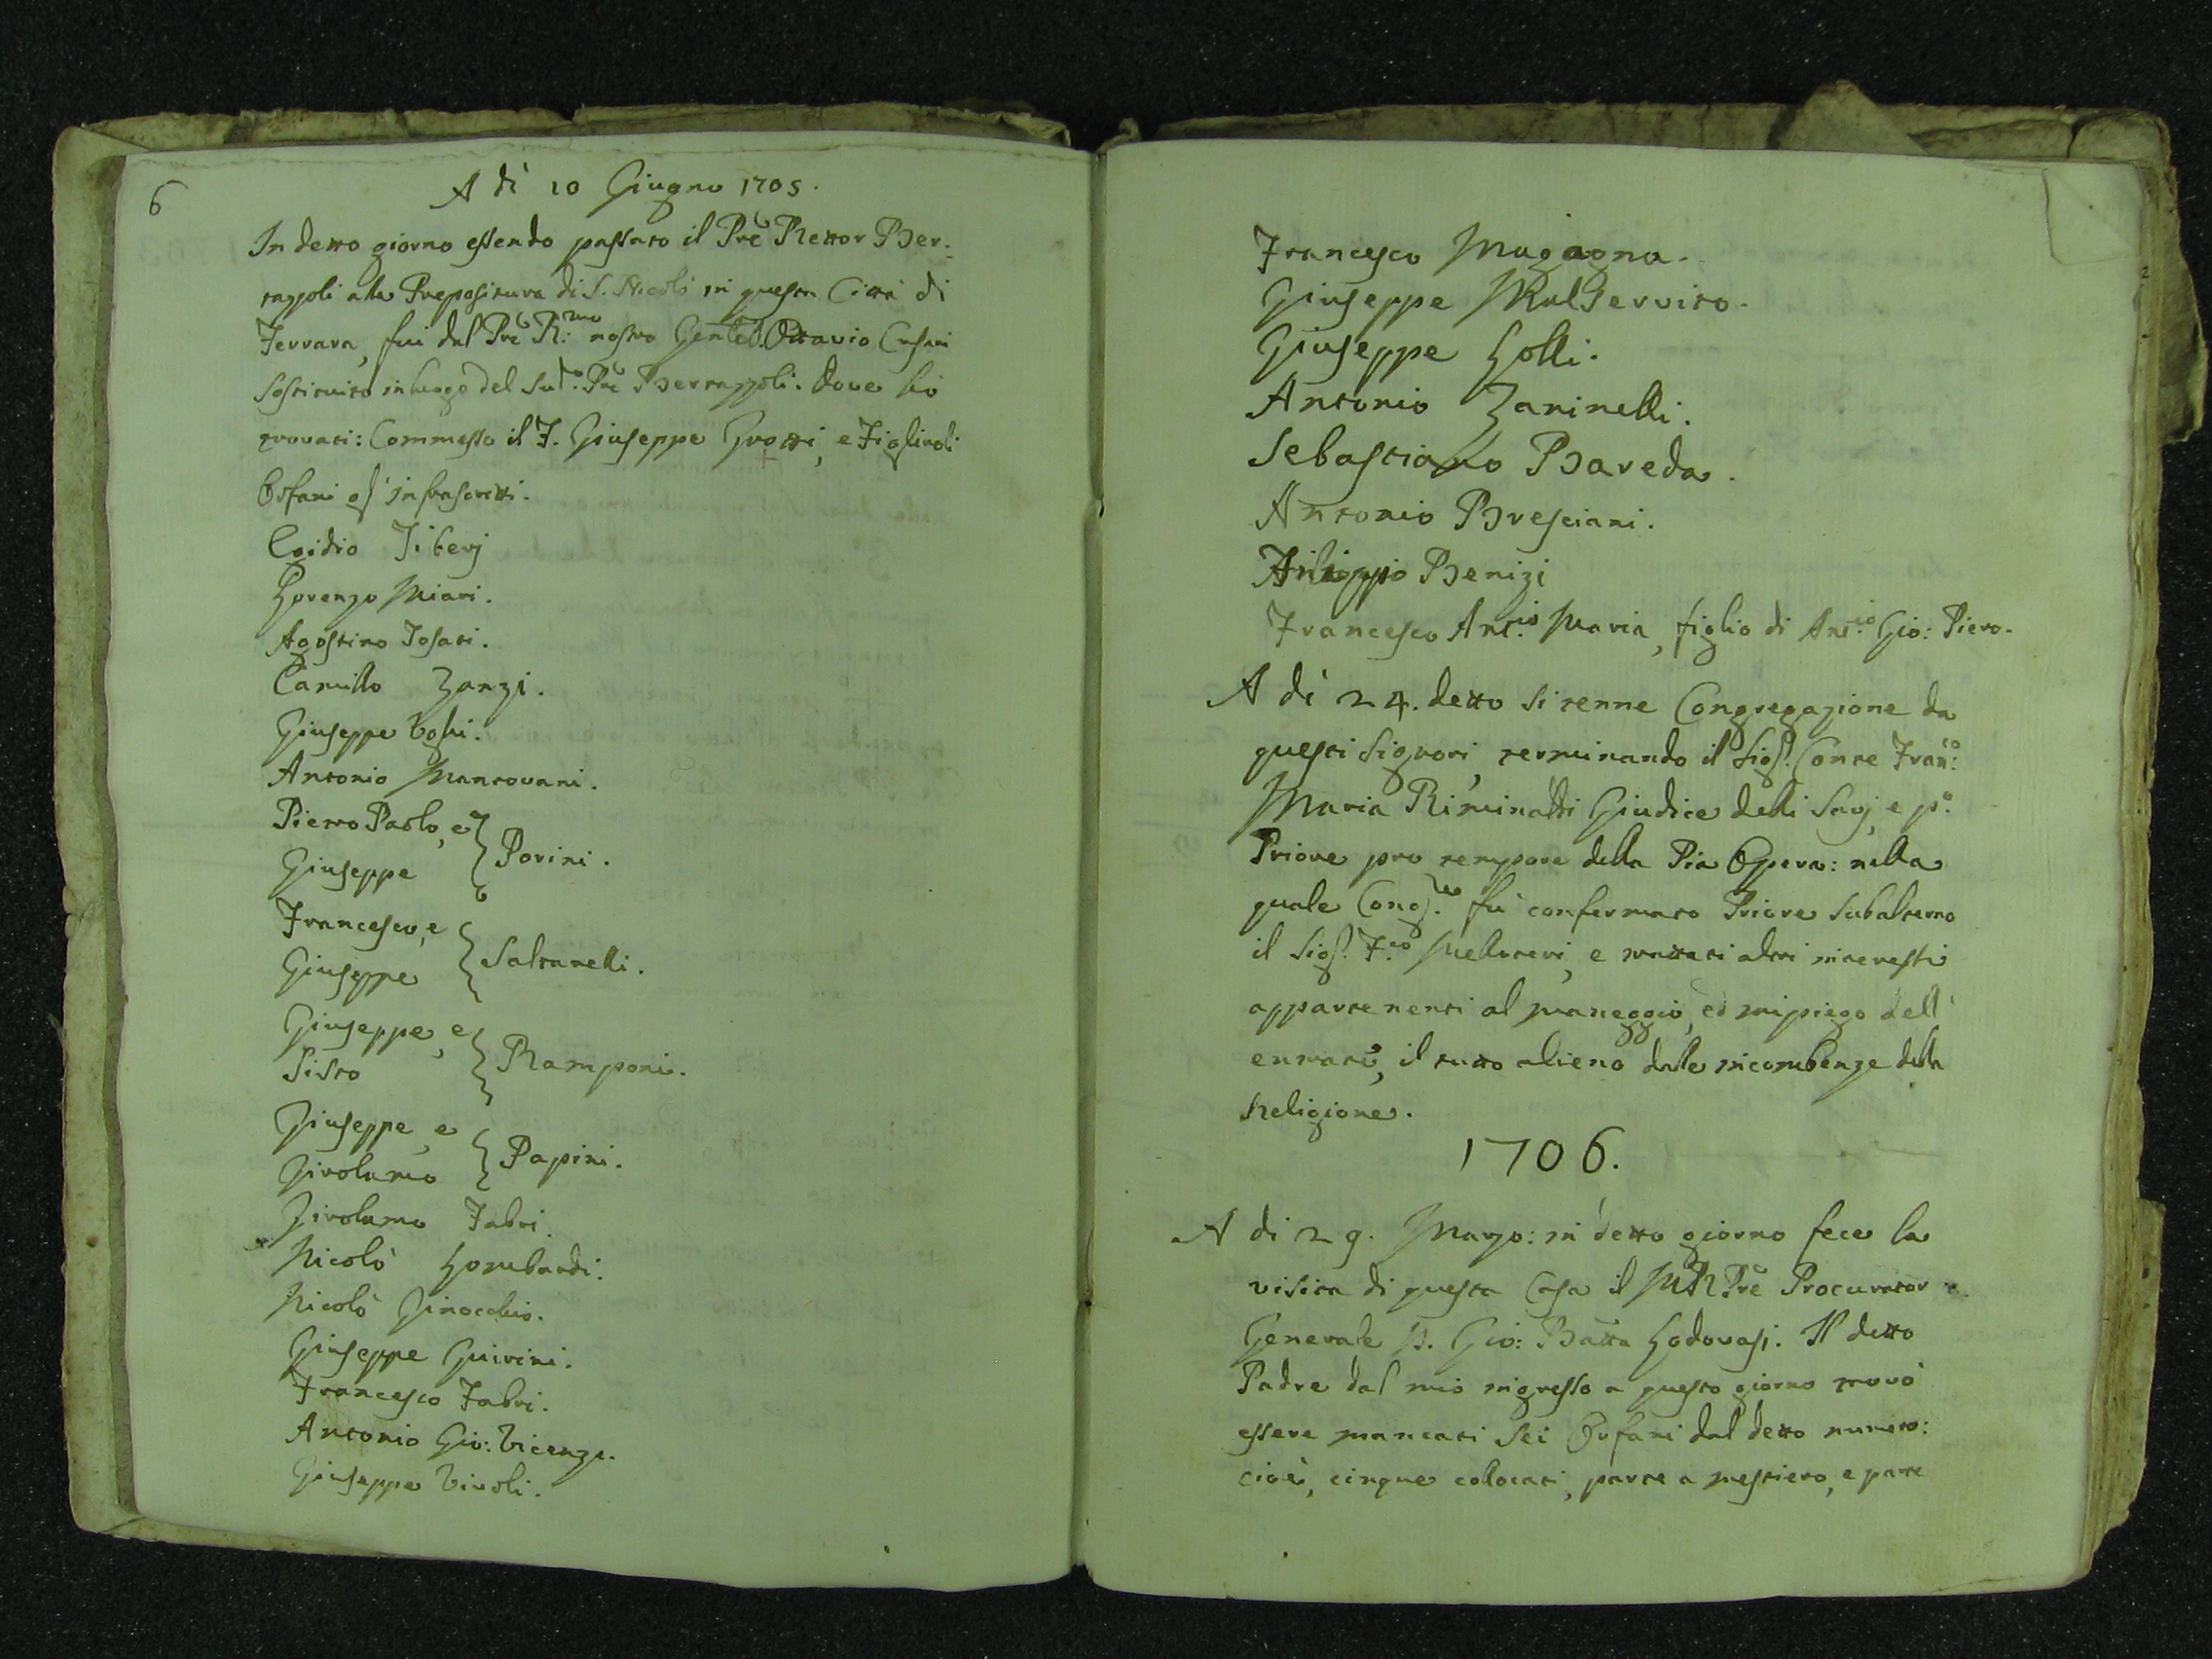 6
A dì 10 Giugno 1705.
In detto giorno essendo passato il Prē Rettor Ber-
tazzoli alla Prepositura di S. Nicolò in questa Città di
Ferrara, fui dal Prē R:mo nostro Genle D. Ottavio Cusani
sostituito in luogo del Sud.o Prē Bertazzoli. dove hò
trovati: Commesso il F. Giuseppe Grotti, e Figliuoli
Orfani gl'infrascritti.
Egidio Tiberj
Lorenzo Miari.
Agostino Fosati.
Camillo Zanzi.
Giuseppe
Antonio Mantovani.
Pietro Paolo, e
Giuseppe } Porini.
Francesco, e
Giuseppe } Saltarelli.
Giuseppe, e
Sisto } Ramponi.
Giuseppe, e
Girolamo } Papini.
Girolamo Fabri.
Nicolò Lombardi.
Nicolò Finocchio.
Giuseppe Guirini.
Francesco Fabri.
Antonio Gio: Vicenzi.
Giuseppe Tivoli.
Francesco Magagna.
Giuseppe Malservito.
Giuseppe Lolli.
Antonio Zaninelli.
Sebastiano Bareda.
Antonio Bresciani.
Filippo Benizi
Francesco Ant.io Maria, figlio di Ant.io Gio: Piero.
A dì 24. detto si tenne Congregazione da
questi Signori, terminando il Sig.r Conte Fran:co
Maria Riminaldi Giudice delli Savj, e p.o
Priore pro tempore della Pia Opera: nella
quale Cong.ne fù confermato Priore Subalterno
il Sig.r F.co Melluseri, e trattati altri interessi
appartenenti al maneggio, ed impiego dell'
entrate, il tutto alieno dalle incombenze della
Religione.
1706.
A di 29. Marzo: in detto giorno fece la
visita di questa Casa il M.R. Prē Procurator
Generale D. Gio: Batta Lodovasi. Il detto
Padre dal mio ingresso a questo giorno trovò
essere mancati sei Orfani dal detto numero:
cioè, cinque collocati, parte a mestiero, e parte